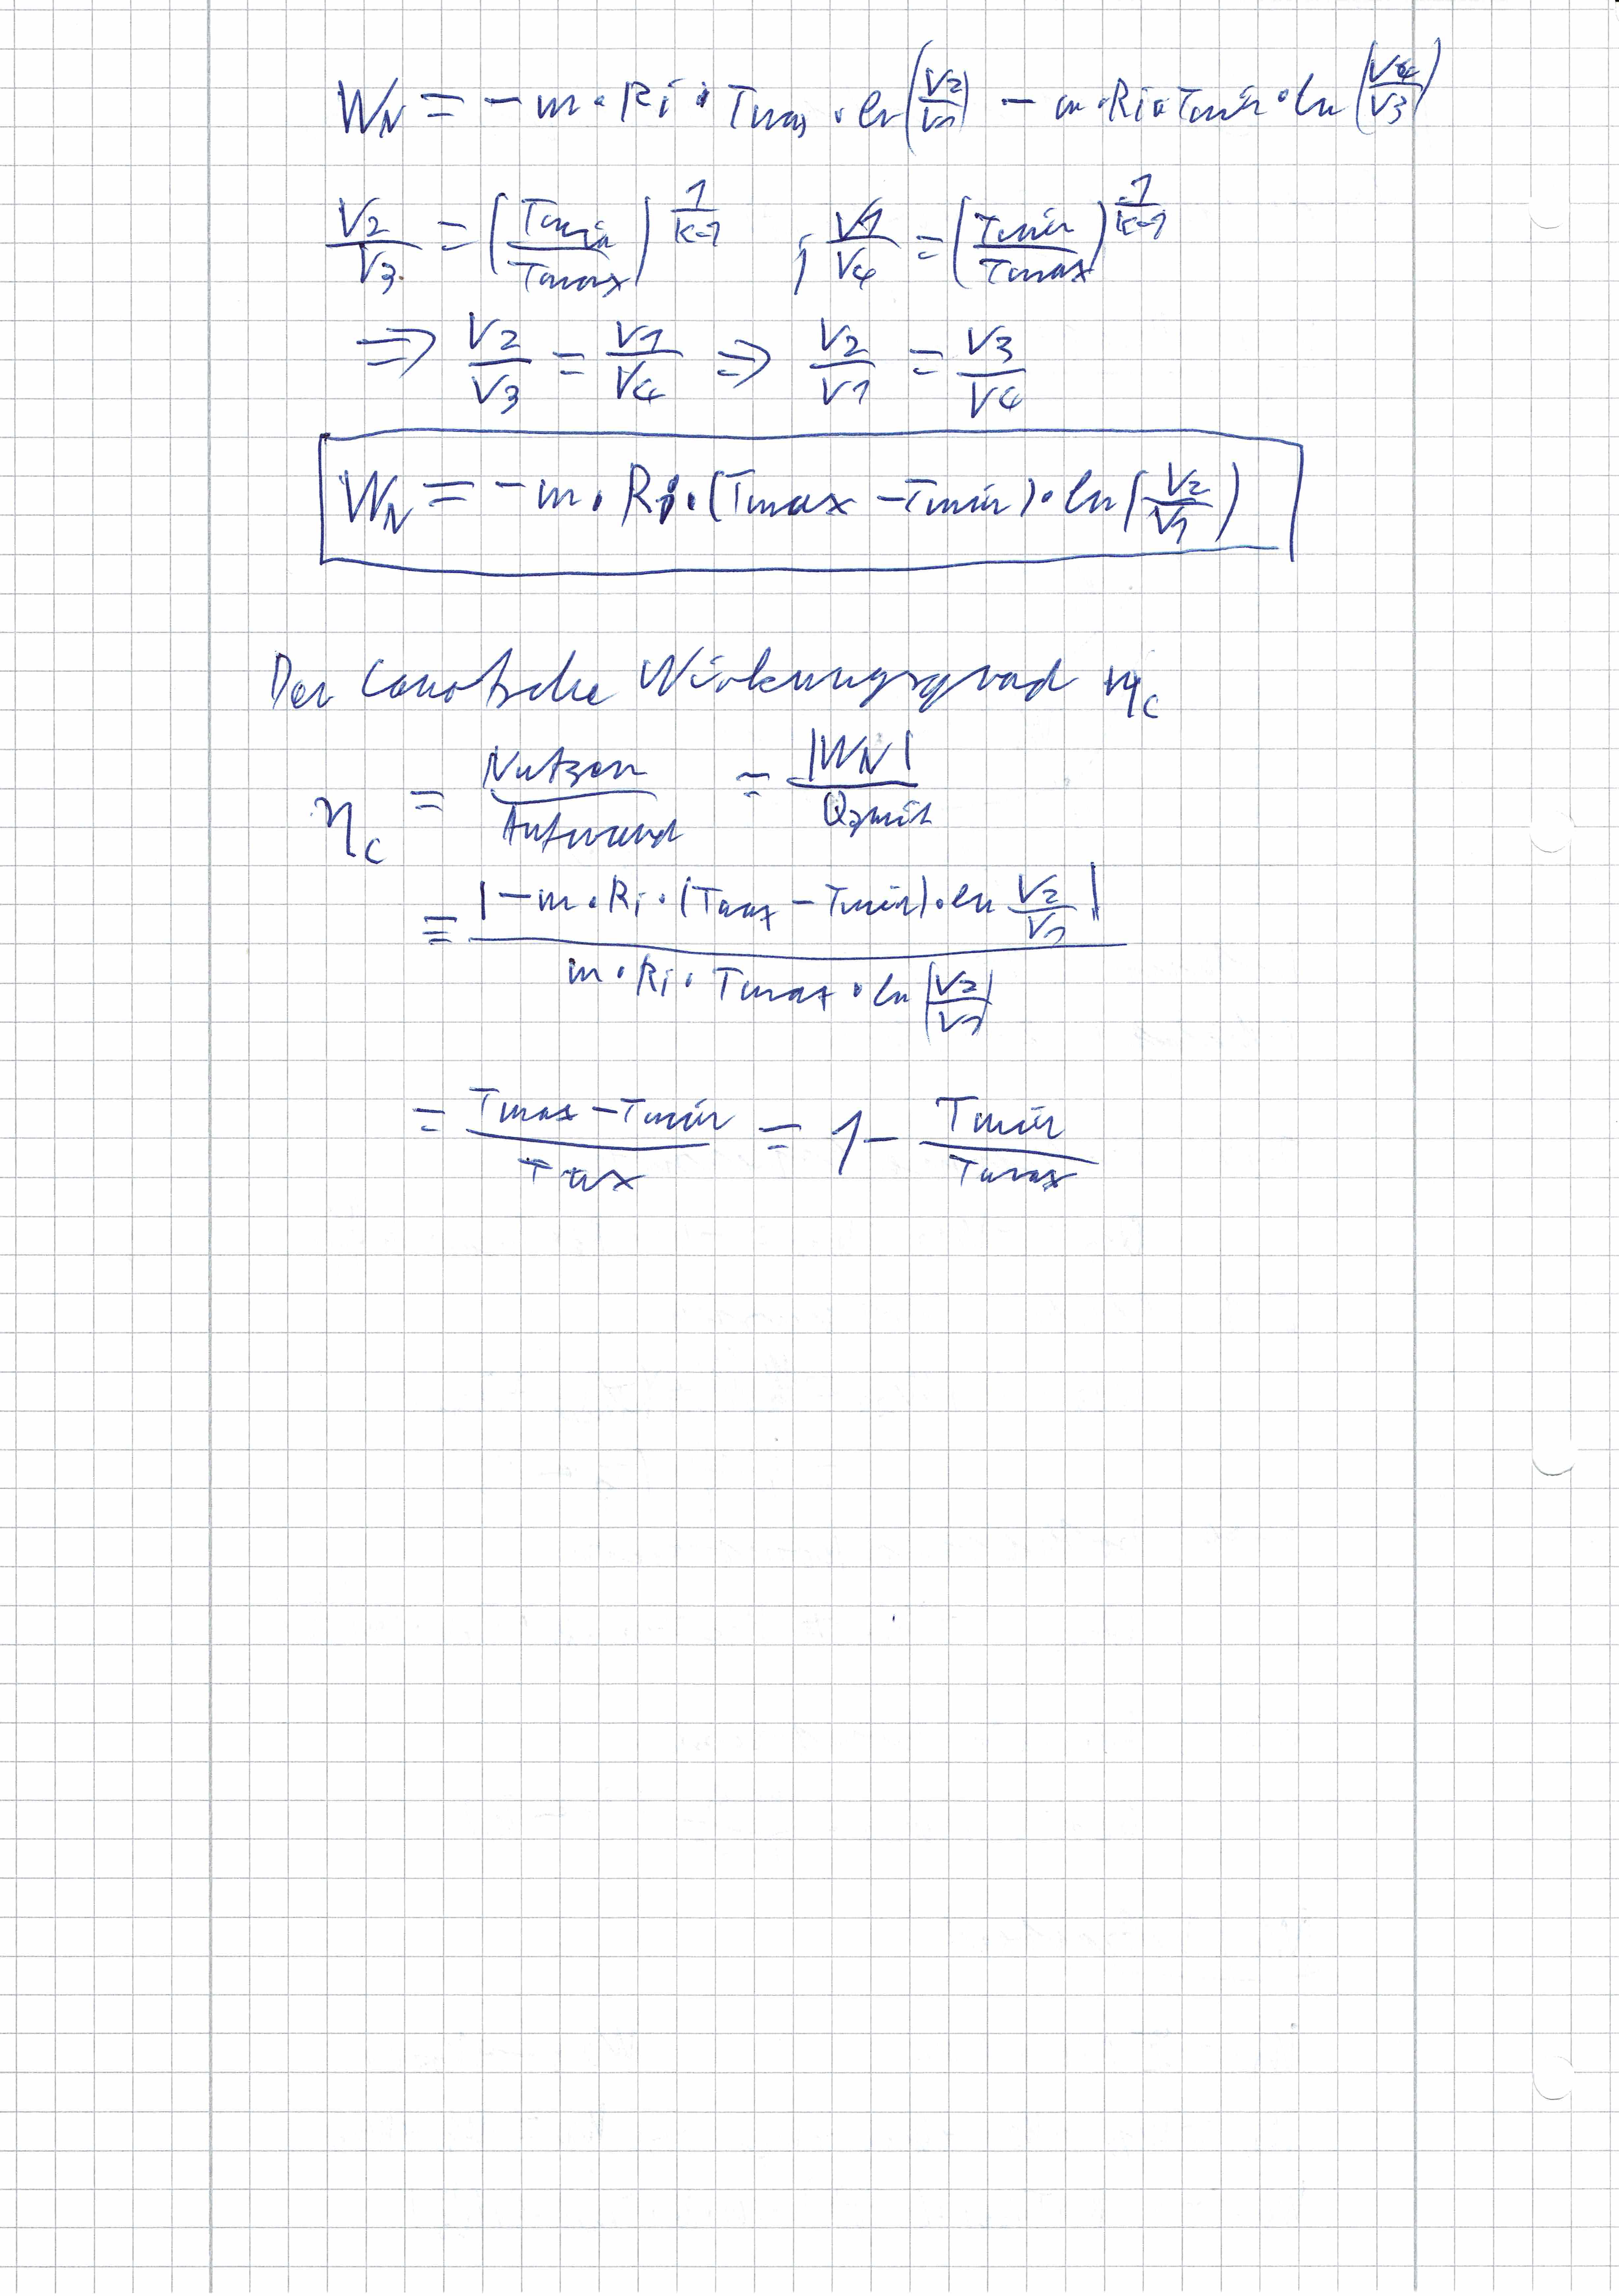 W_N = - m · Ri · Tmax · ln(V2/V1) - m · Ri · Tmin · ln(V4/V3)
V2/V3 = (Tmin/Tmax)^(1/(κ-1)) ; V1/V4 = (Tmin/Tmax)^(1/(κ-1))
⇒ V2/V3 = V1/V4 ⇒ V2/V1 = V3/V4
W_N = - m · Ri · (Tmax - Tmin) · ln(V2/V1)
Der Carnotsche Wirkungsgrad η_c
η_c = Nutzen/Aufwand = |W_N|/
= |- m · Ri · (Tmax - Tmin) · ln V2/V1| / m · Ri · Tmax · ln(V2/V1)
= (Tmax - Tmin)/Tmax = 1 - Tmin/Tmax